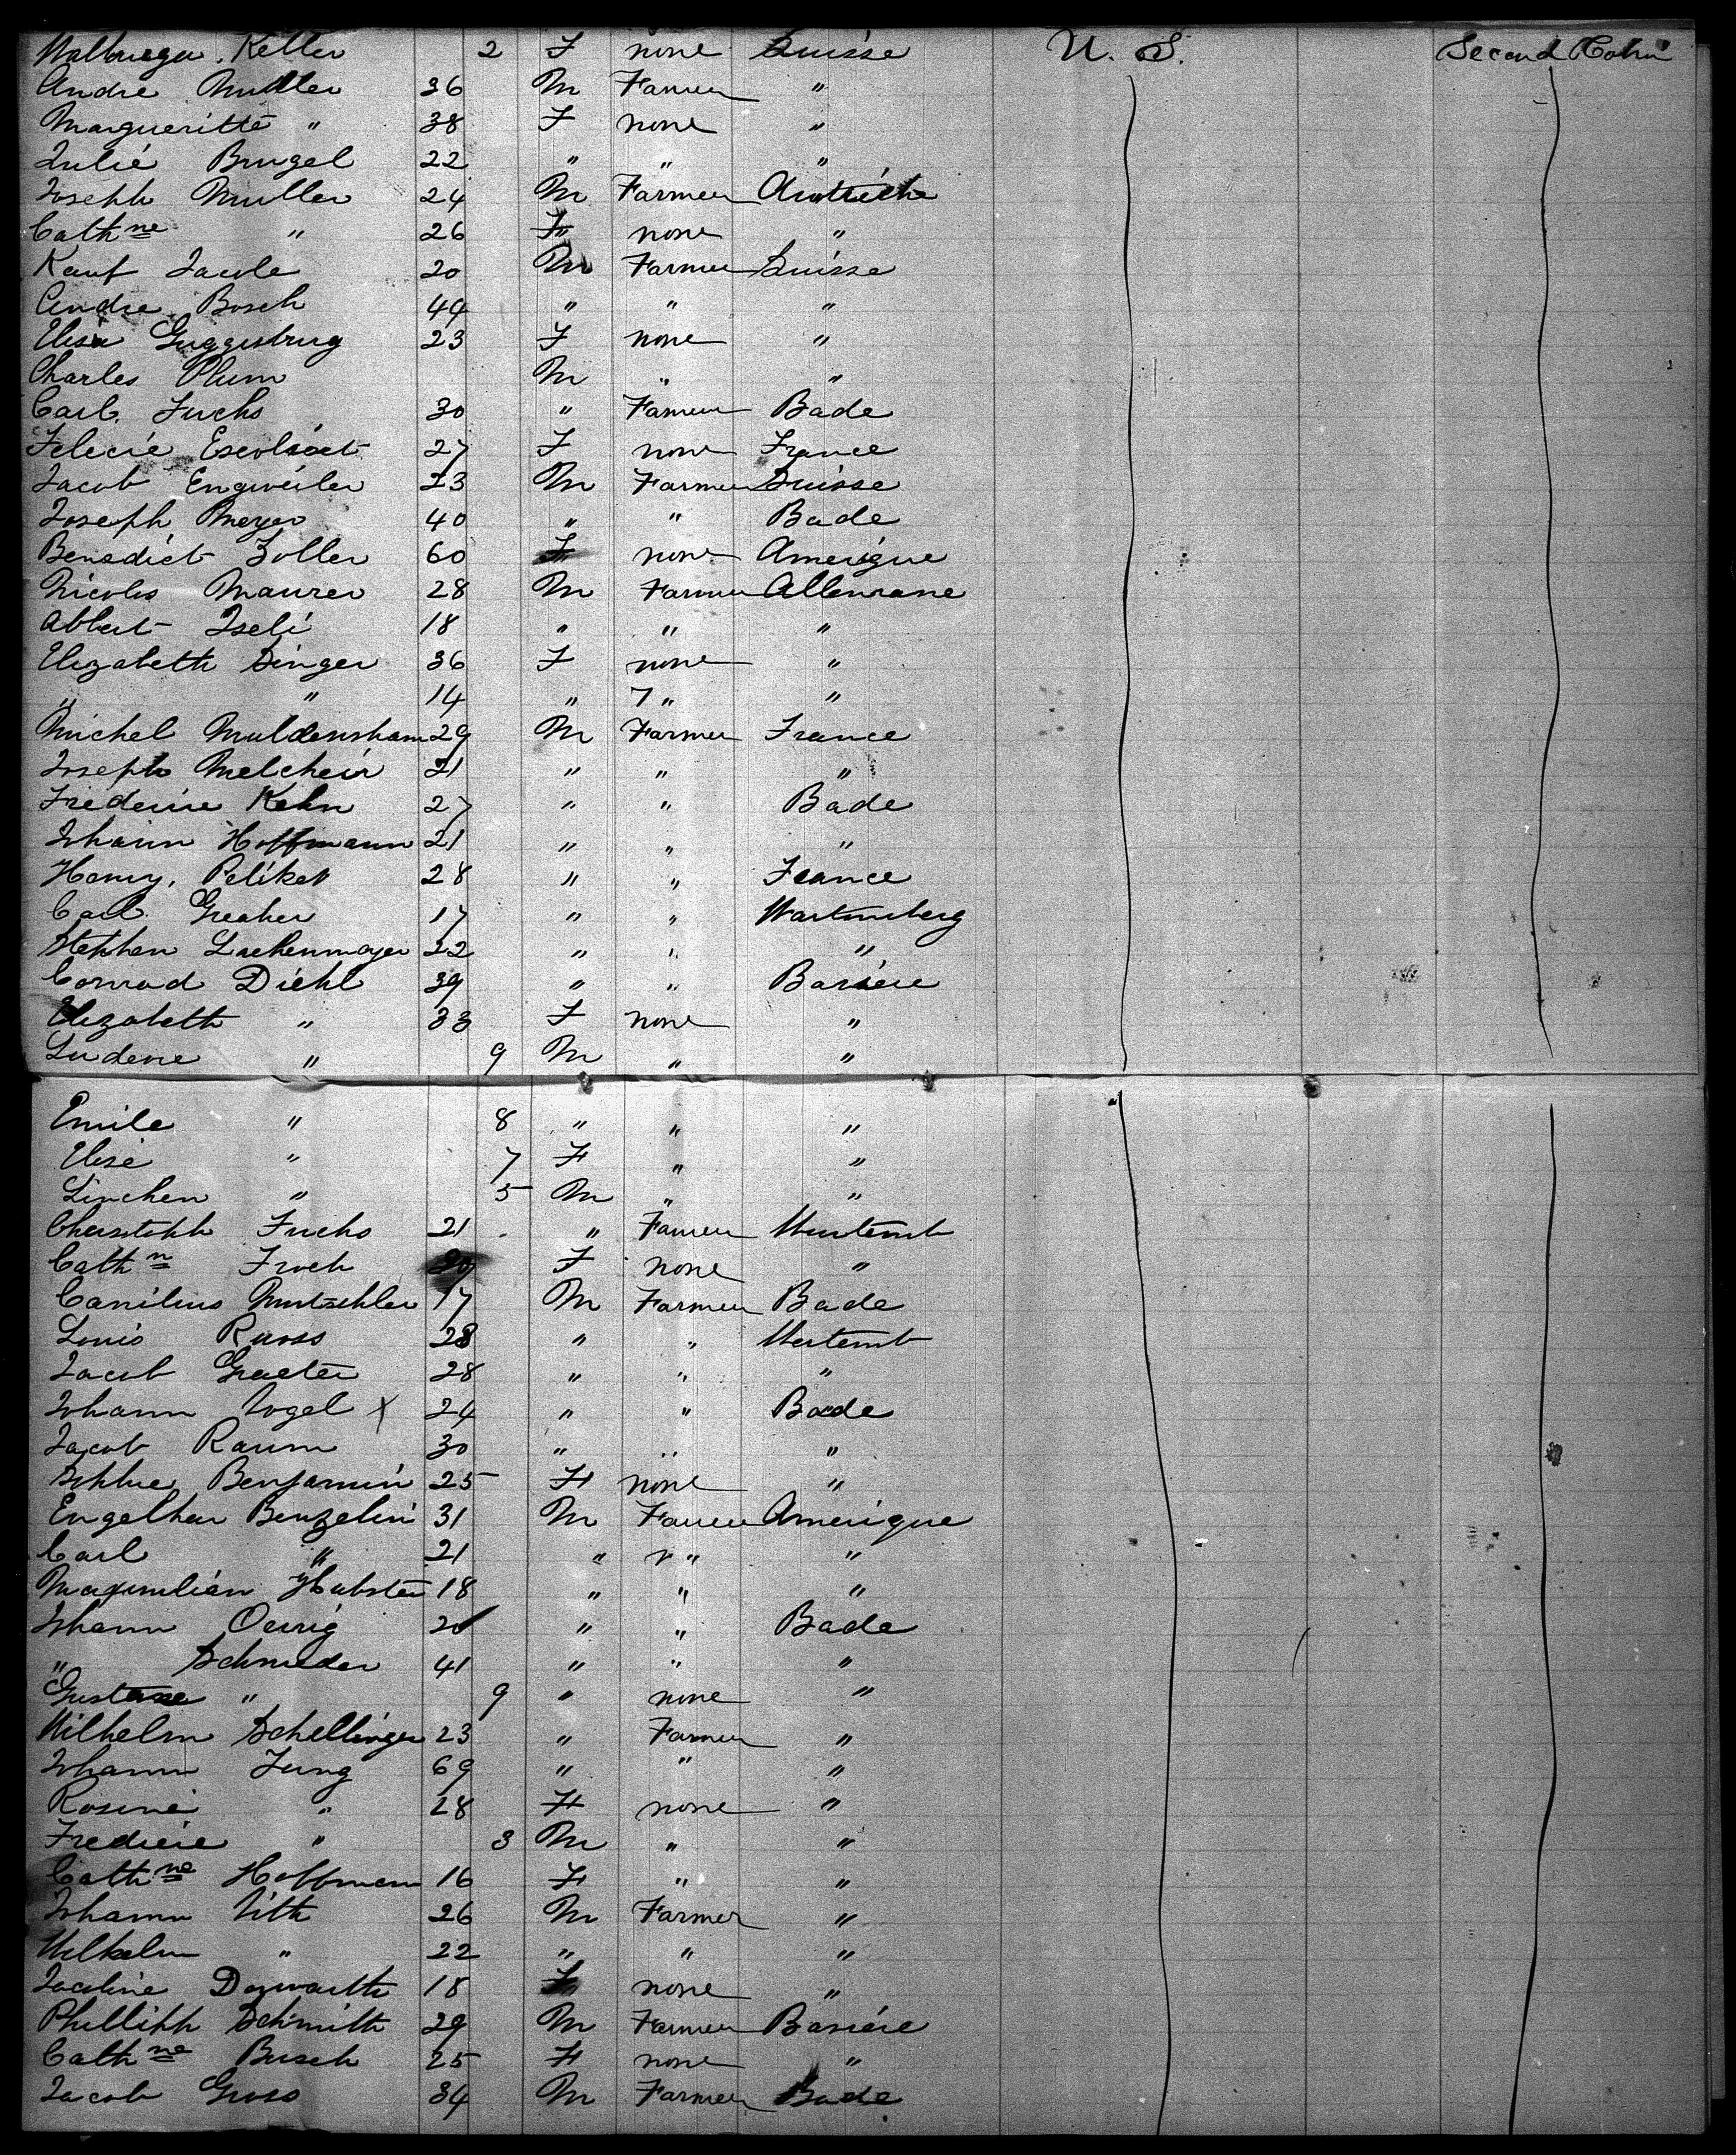 Walburga Keller 2 F none Suisse U. S. Second Cabin
Andre Muller 36 M Farmer "
Margueritte " 38 F none "
Julie Brugel 22 " " "
Joseph Muller 24 M Farmer Autriche
Cathne " 26 F none "
Kauf Jacob 20 M Farmer Suisse
Andre Bosch 44 " " "
Elisa Guggisbrug 23 F none "
Charles Plum M " "
Carl Fuchs 30 " Farmer Bade
Felecie 27 F none France
Jacob Engweiler 23 M Farmer Suisse
Joseph Meyer 40 " " Bade
Benedict Zoller 60 F none Amerique
Nicolas Maurer 28 M Farmer Allemane
Albert Iseli 18 " " "
Elizabeth Singer 36 F none "
" " 14 " " "
Michel Muldensham 29 M Farmer France
Joseph Melcheir 21 " " "
Frederic Kehn 27 " " Bade
Johann Hoffmann 21 " " "
Henry Peliket 28 " " France
Carl Greaher 17 " " Wartemberg
Stephen Lachenmayer 22 " " "
Conrad Diehl 39 " " Baviere
Elizabeth " 33 F none "
" 9 M " "
Emile " 8 " " "
Elise " 7 F " "
Linchen " 5 M " "
Christoph Fuchs 21 " Farmer Wurtemb
Cathn Froch F none "
Canilius Mutschler 17 M Farmer Bade
Louis Ruoss 28 " " Wertemb
Jacob Graeter 28 " " "
Johann Vogel x 24 " " Bade
Jacob Raum 30 " " "
Benjamin 25 F none "
Engelhar Benzelin 31 M Farmer Amerique
Carl " 21 " " "
Maximilian Habster 18 " " "
Johann Oerrig 20 " " Bade
" Schneider 41 " " "
Gustave " 9 " none "
Wilhelm Schellinger 23 " Farmer "
Johann Jung 69 " " "
Rosine " 28 F none "
Frederic " 3 M " "
Cathne Hoffmann 16 F " "
Johann Vith 26 M Farmer "
Wilhelm " 22 " " "
Jacobine Dorwarth 18 F none "
Phillipp Schmith 29 M Farmer Baviere
Cathne Busch 25 F none "
Jacob Gross 34 M Farmer Bade